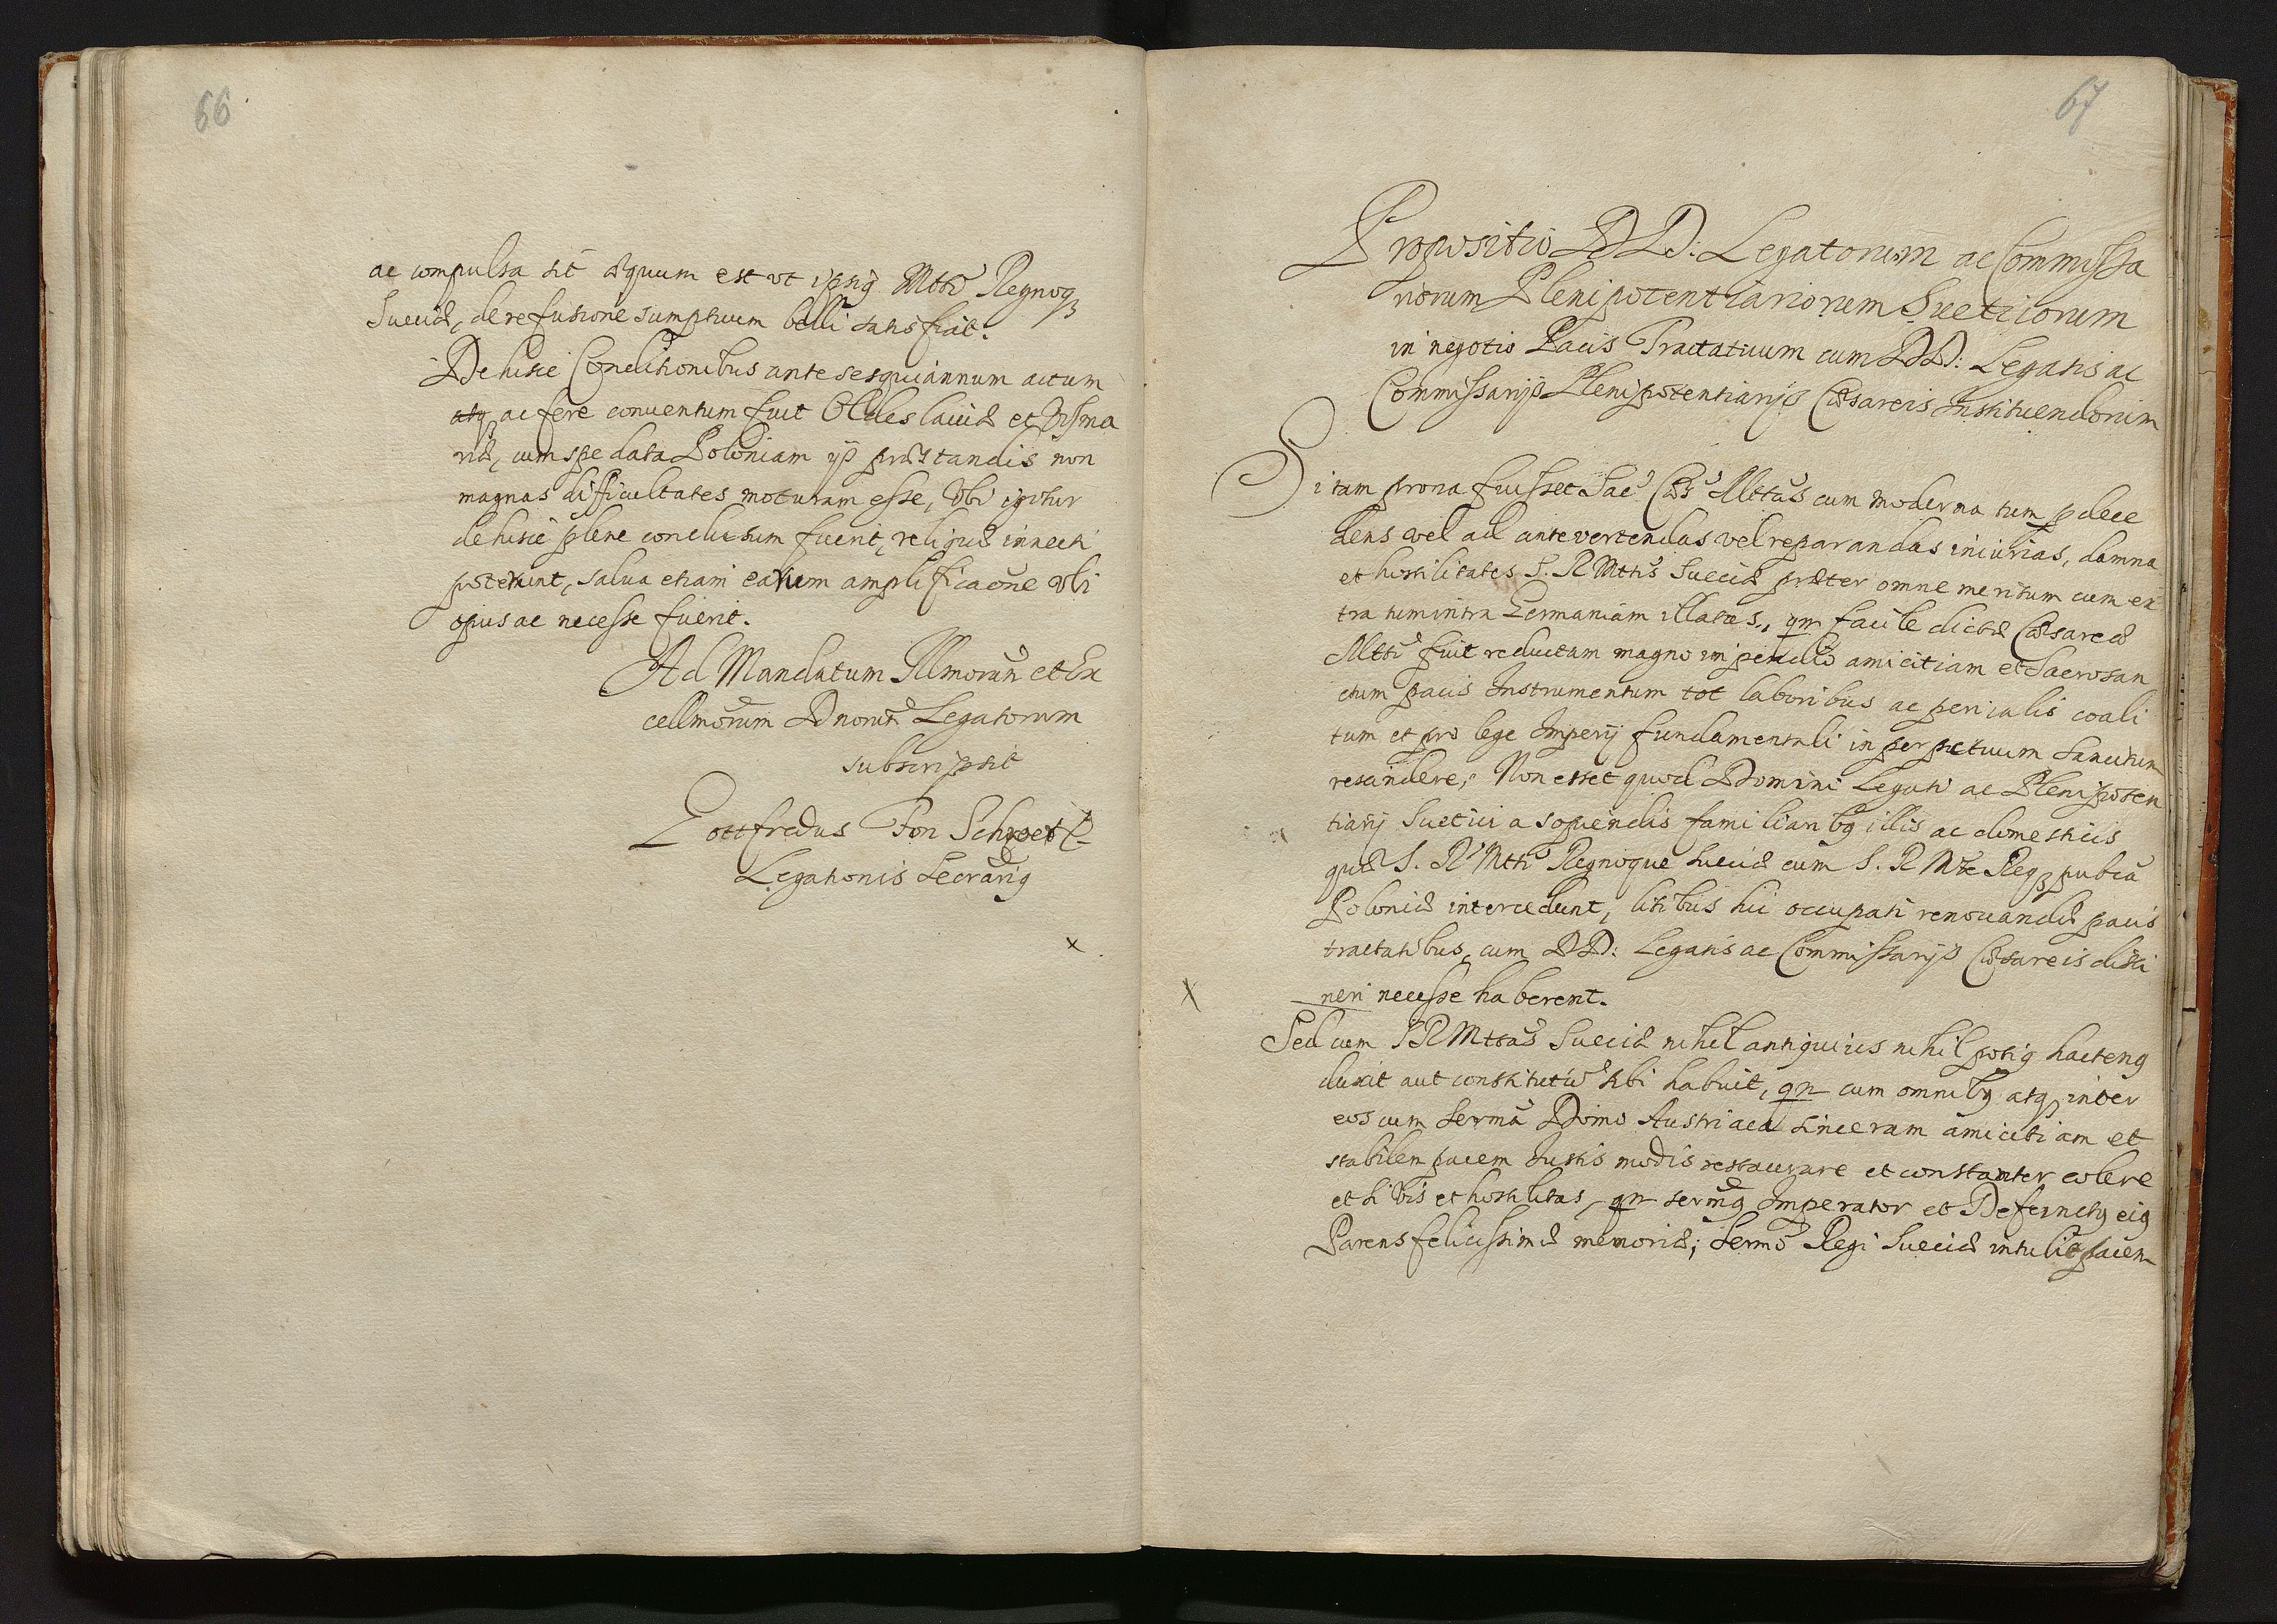 66
ac compulsa sit æquum est vt ipsiq Mtti Regnoq3
Sueciæ, de refusione sumptuum belli satisfiat.
De hisce Conditionibus ante sesquiannum actum
atq ac fere conuentum fuit Oldeslauiæ et Visma
riæ, cum spe data Poloniam ijs præstandis non
magnas difficultates moturam esse, Vbi igitur
de hisce plene conclusum fuerit, reliquæ innecti
poterunt, salua etiam earum amplificaõne vbi
opus ac necesse fuerit.
Ad Mandatum Illmorum et Ex
cellmorum Dnorum Legatorum
subscripsit
Gottfredus Fon Schroet
Legationis Secrariq
x
67
Propositio DD: Legatorum ac Commissa
riorum Plenipotentiariorum Sueticorum
in negotio Pacis Tractatuum cum DD: Legatis ac
Commissarijs Plenipotentiarijs Cæsareis Instituendorum
Si tam prona fuisset Sac Cæs Mttas cum moderna tum p dece
dens vel ad antevertendas vel reparandas iniurias, damna
et hostilitates S. R Mttis Sueciæ præter omne meritum cum ex
tra tum intra Germaniam illatas, qm facile dictæ Cæsareæ
Mtti fuit reductam magno impendio amicitiam et Sacrosan
ctum pacis Instrumentum tot laboribus ac periculis coali
tum et pro lege Imperij fundamentali in perpetuum sancitum
rescindere, Non esset quod Domini Legati ac Plenipoten
tiarij Suetici a sopiendis familiaribq illis ac domesticis
quæ S. R Mtti Regnoque Sueciæ cum S. R Mtte Reqz publca
Poloniæ intercedunt, litibus hic occupati renouandis pacis
tractatibus, cum DD: Legatis ac Commissarijs Cæsareis disti
neri necesse haberent.
x
Sed cum S R Mttas Sueciæ nihil antiquius nihil potiq hactenq
duxit aut constitutu sibi habuit, qm cum omnibq atq inter
eos cum Serma Domo Austriaca sinceram amicitiam et
stabilem pacem Iustis modis restaurare et constanter colere
et si Vis et hostilitas, qm sermq Imperator et Defunctq eiq
Parens felicissimæ memoriæ, Sermo Regi Sueciæ intulit, pacem